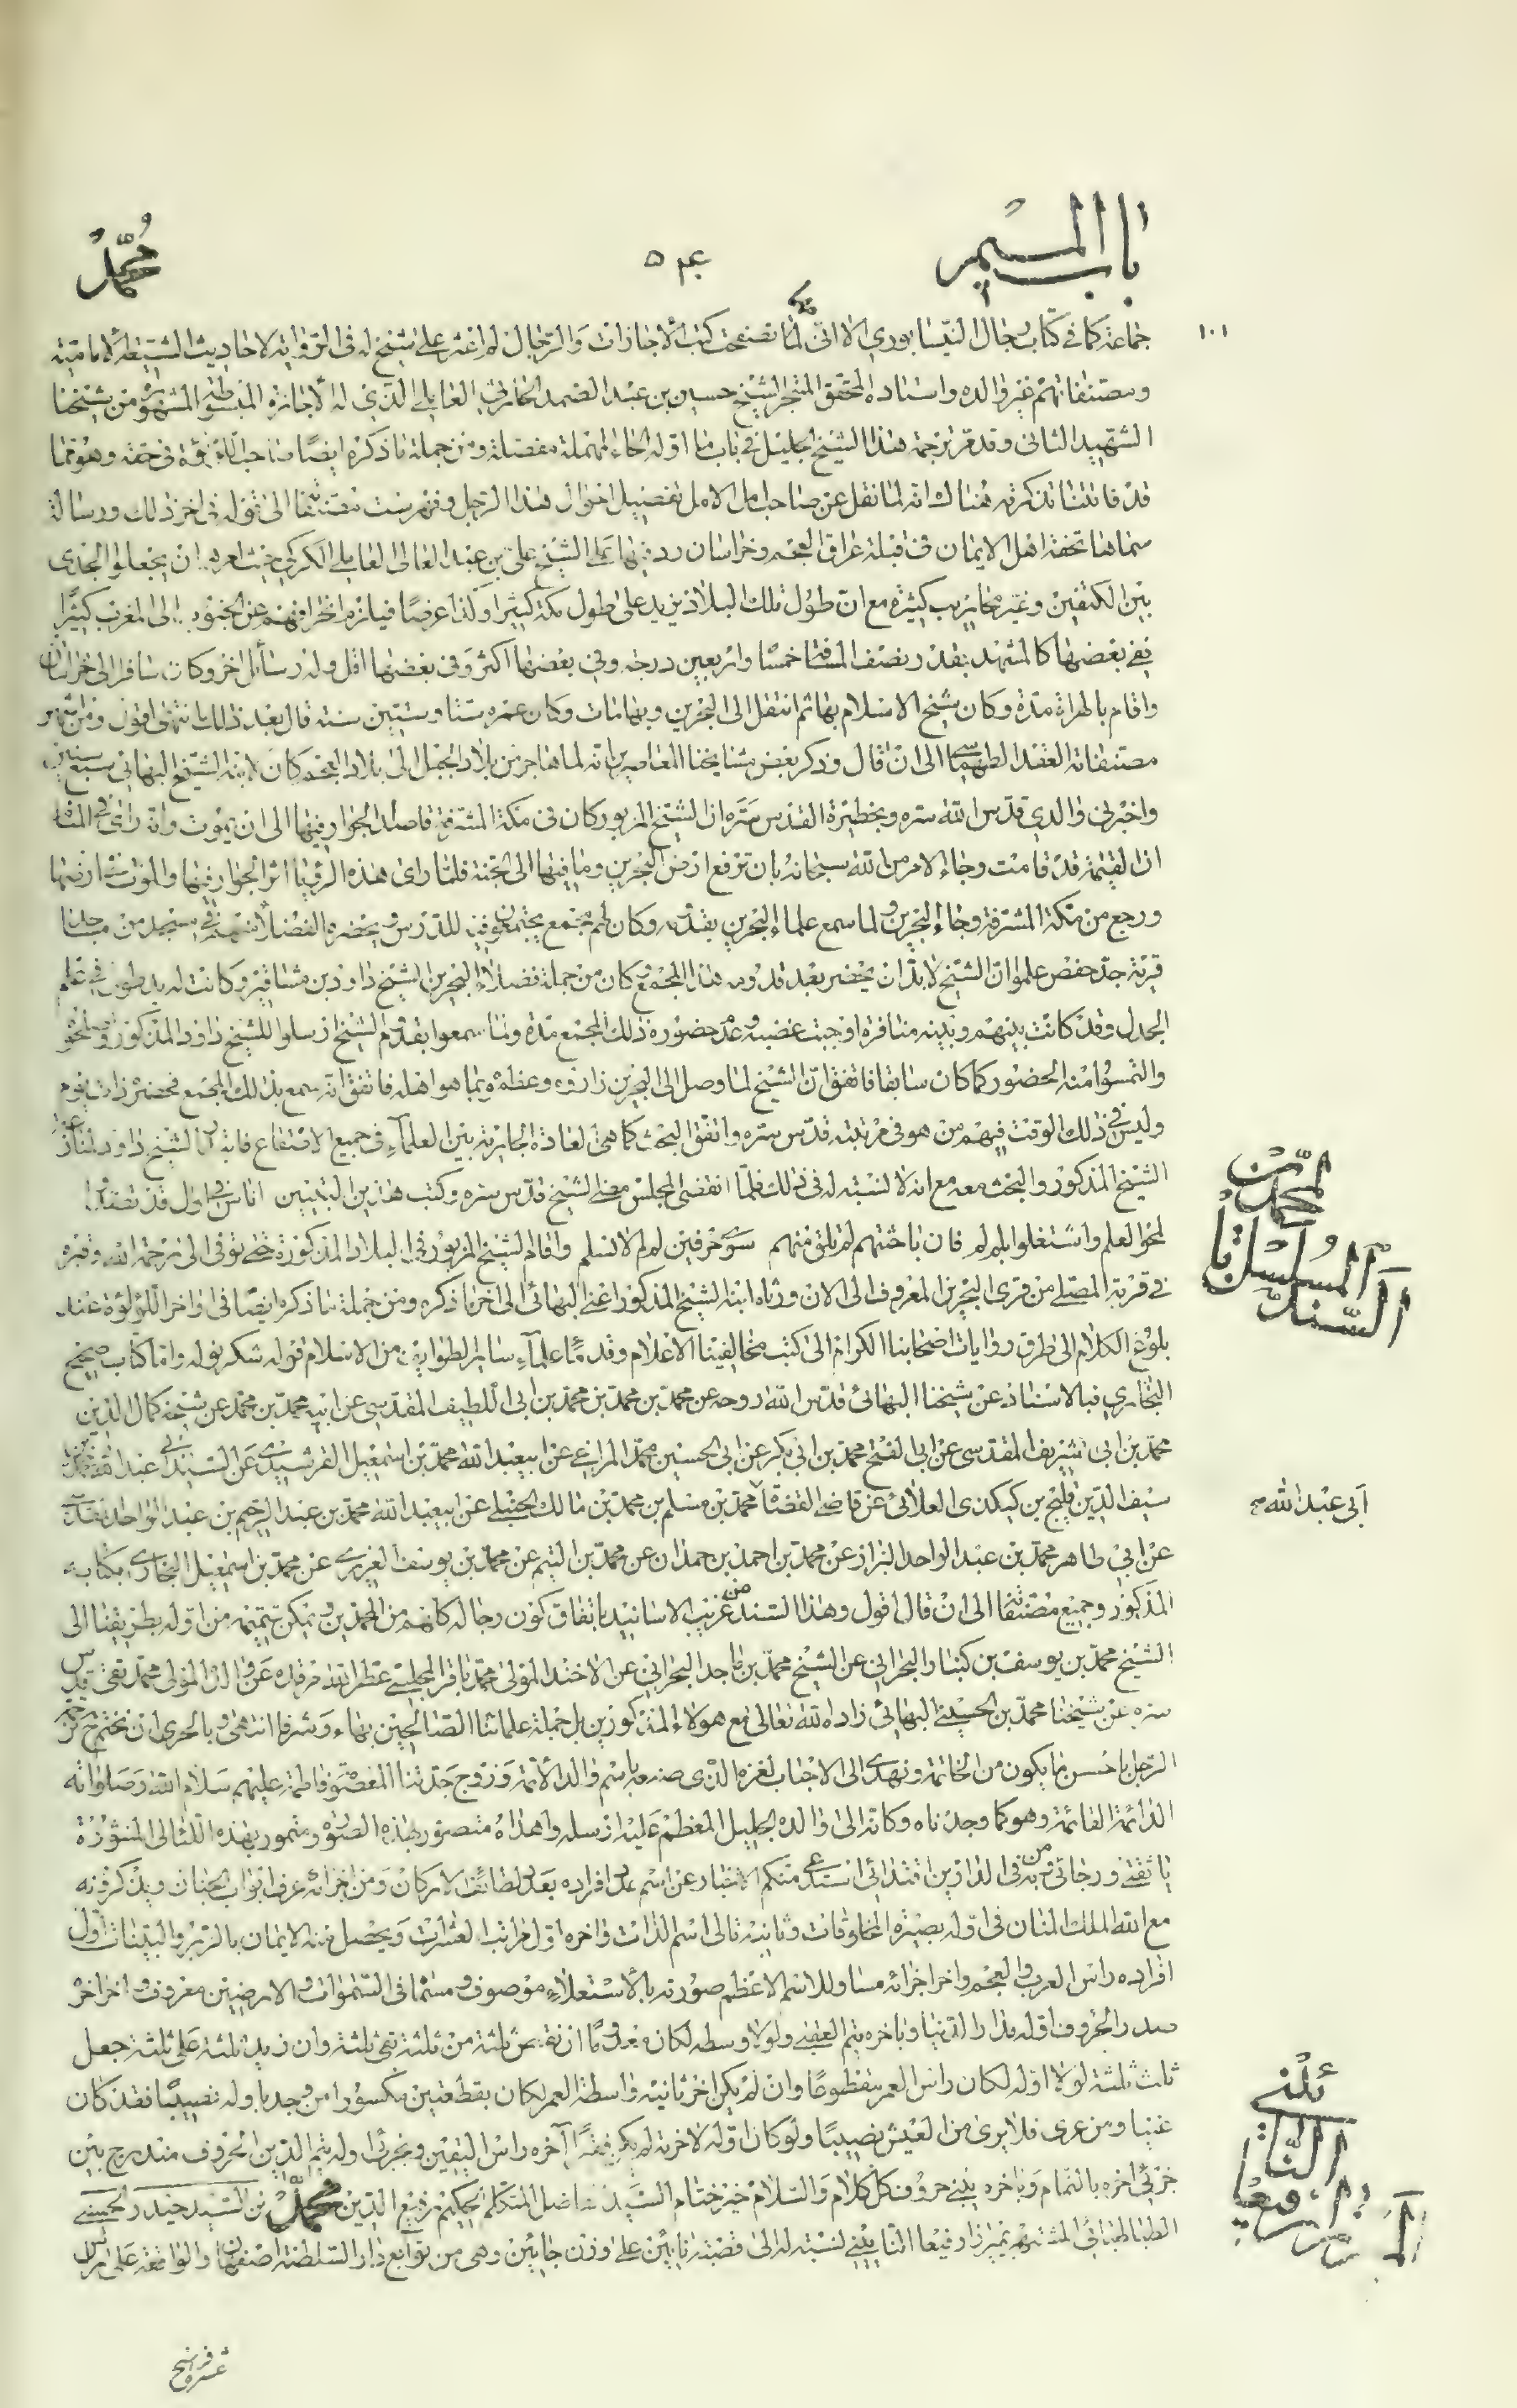 باب الميم
محمد
١٠١
جماعة كما في كتاب رجال النيسابوري الا انى لما تصفحت كتب الأجازات والرجال لم اعثر على شيخ له في الرواية لاحاديث الشيعة الامامية
ومصنفاتهم غير والده واستاده المحقق المتبحر الشيخ حسين بن عبد الصمد الحارثي العاملي الذي له الأجازة المبسوطة المشهورة من شيخنا
الشهيد الثاني وقد مر ترجمة هذا الشيخ الجليل في باب ما اوله الحاء المهملة مفصلة ومن جملة ما ذكره ايضا صاحب اللؤلؤة في حقه وهو مما
قد فاتنا تذكرته هناك انه لما نقل عن صاحب امل الامل تفصيل احوال هذا الرجل وفهرست مصنفاته الى قوله في اخر ذلك ورسالة
سماها تحفة اهل الايمان في قبلة عراق العجم وخراسان رد فيها على الشيخ علي بن عبد العالي العاملي الكركي حيث امرهم ان يجعلوا الجدى
بين الكتفين وغير محاريب كثيرة مع ان طول تلك البلاد يزيد على طول مكة كثيرا وكذا عرضا فيلزم انحرافهم عن الجنوب الى المغرب كثيرا
ففي بعضها كالمشهد بقدر نصف المسافة خمسا واربعين درجة وفي بعضها اكثر وفي بعضها اقل وله رسائل اخر وكان سافر الى خراسان
واقام بالهراة مدة وكان شيخ الاسلام بها ثم انتقل الى البحرين وبها مات وكان عمره ستا وستين سنة قال بعد ذلك انتهى اقول ومن شهر
مصنفاته العقد الطهماسبي الى ان قال وذكر بعض مشايخنا المعاصرين انه لما هاجر من بلاد الجبل الى بلاد العجم كان لابنه الشيخ البهائي سبع سنين
واخبرني والدي قدس الله سره وبحظيرة القدس سره ان الشيخ المزبور كان في مكة المشرفة قاصدا الجوار فيها الى ان يموت وانه راى في المنام
ان القيمة قد قامت وجاء الامر من الله سبحانه بان ترفع ارض البحرين وما فيها الى الجنة فلما راى هذه الرؤيا اثر الجوار فيها والموت في ارضها
ورجع من مكة المشرفة وجاء البحرين ولما سمع علماء البحرين بقدومه وكان لهم مجمع يجتمعون فيه للدرس ويحضره الفضلاء منهم في مسجد من مساجد
قرية جد حفص علموا ان الشيخ لا بد ان يحضر بعد قدومه هذا المجمع وكان من جملة فضلاء البحرين الشيخ داود بن شافيز وكانت له يد طولى في علم
الجدل وقد كانت بينهم وبينه منافرة اوجبت غضبه وعدم حضوره ذلك المجمع مدة ولما سمعوا بقدوم الشيخ ارسلوا للشيخ داود المذكور
والتمسوا منه الحضور كما كان سابقا فاتفق ان الشيخ لما وصل الى البحرين زاروه وعظموه بما هو اهله فاتفق انه سمع بذلك المجمع فحضر ذات يوم
وليس في ذلك الوقت فيهم من هو في مرتبته قدس سره واتفق البحث كما هي العادة الجارية بين العلماء في جميع الاصقاع فابتدر الشيخ داود لمنازعة
الشيخ المذكور والبحث معه مع انه لا نسبة له في ذلك فلما انقضى المجلس مضى الشيخ قدس سره وكتب هذين البيتين اناس في اوال قد تصدوا
لمحو العلم واشتغلوا بلم لم فان باحثتهم لم تلق منهم سوى حرفين لم لم لا نسلم واقام الشيخ المزبور في البلاد المذكورة حتى توفى الى رحمة الله وقبره
في قرية المصلى من قرى البحرين المعروف الى الان ورثاه ابنه الشيخ المذكور اعنى البهائي الى اخر ما ذكره ومن جملة ما ذكره ايضا في اواخر اللؤلؤة عند
بلوغ الكلام الى طرق روايات اصحابنا الكرام الى كتب مخالفينا الاعلام وقدماء علماء ساير الطوايف من الاسلام قوله شكر قوله واما كتاب صحيح
البخاري فبالاسناد عن شيخنا البهائي قدس الله روحه عن محمد بن محمد بن محمد بن ابي اللطيف المقدسي عن ابيه محمد بن محمد عن شيخه كمال الدين
محمد بن ابي شريف المقدسي عن ابي الفتح محمد بن ابي بكر عن ابي الحسين محمد المراغي عن ابي عبد الله محمد بن اسمعيل القرشيدي عن السيد ابي عبد الله محمد بن
سيف الدين فليح بن كيكلدى العلائي عن قاضي القضاة محمد بن مسلم بن محمد بن مالك الحنبلي عن ابي عبد الله محمد بن عبد الرحيم بن عبد الواحد المقدسي
عن ابي طاهر محمد بن عبد الواحد البزاز عن محمد بن احمد بن حمدان عن محمد بن اليتم عن محمد بن يوسف الفربري عن محمد بن اسمعيل البخاري بكتابه
المذكور وجميع مصنفاته الى ان قال اقول وهذا السند من غريب الاسانيد باتفاق كون رجاله كلهم من المحمدين ويمكن تتميمه من اوله بطريقنا الى
الشيخ محمد بن يوسف بن كنبار البحراني عن الشيخ محمد بن ماجد البحراني عن الاخند المولى محمد باقر المجلسي عطر الله مرقده عن والده المولى محمد تقي قدس
سره عن شيخنا محمد بن الحسين البهائي زاده الله تعالى مع هولاء المذكورين بل جملة علمائنا الصالحين بهاء وشرفا انتهى وبالحرى ان نختم ترجمة
الرجل باحسن ما يكون من الخاتمة ونهدى الى الاحباب لغزه الذي صنعه باسم والد الأئمة وزوج جدتنا المعصومة فاطمة عليهم سلام الله وصلواته
الدائمة القائمة وهو كما وجدناه وكانه الى والده الجليل المعظم عليه ارسله واهداه متصور بهذه الصورة ومنمور بهذه اللئالى المنثورة
يا ثقتي ورجائي ومن به في الدارين اقتدائي استدعي منكم الاخبار عن اسم عدل افراده بعدل لطائف الاركان ومن اجزائه عرف ابواب الجنان ويذكر قرنه
مع الله الملك المنان في اوله بصيرة المخلوقات وثانيه تالى اسم الذات واخره اول مراتب العشرات ويحصل منه الايمان بالزبر والبينات اول
افراده راس العرب والعجم واخر اجزائه مساو للاسم الاعظم صورته بالأستعلاء موصوف ومسماه في السموات والارضين معروف اخر اخر
صدر الحروف اوله بذا را الدنيا وباخره يتم العقبى ولولا وسطه لكان معدوما ان نقص ثلثة من ثلثة تبقى ثلثة وان زيد ثلثة على ثلثة جعل
ثلث ثلثة لولا اوله لكان راس العمر مقطوعا وان لم يكن اخر ثانيه واسطة العمر لكان بقطعتين مكسورا من وجد باوله نصيبا فقد كان
غنيا ومن عرى فلا يرى من العيش نصيبا ولو كان اوله لاخرته لم يكن فقرا آخره راس اليقين وبجزئى اوله يتم الدين الحروف مندرج بين
جزئى اخره بالتمام وباخره يبنى حروف كل كلام والسلام خير ختام السيد الفاضل المتكلم الحكيم رفيع الدين محمد بن السيد حيدر الحسيني
الطباطبائي المشتهر بميرزا رفيعا النائيني نسبته الى قصبة نايين على وزن جايين وهي من توابع دار السلطنة اصفهان والواقعة على راس
المحمدين
المسلسل بـ
السند
ابى عبد الله
ئينى
النا
رفيعا
الميرزا
عشرة فرسخ